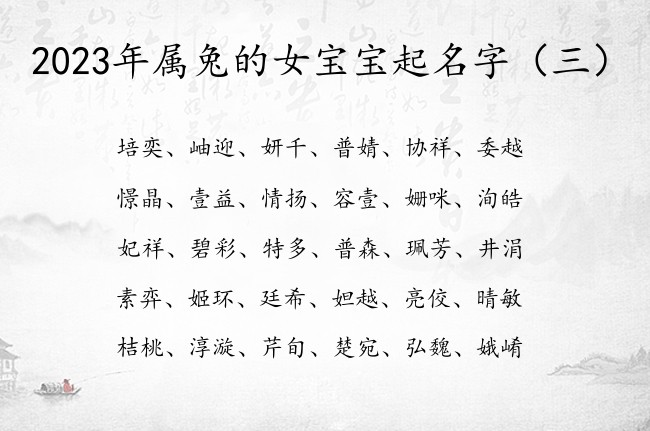 2023年属兔的女宝宝起名字（三）
培奕、岫迎、妍千、普婧、协祥、委越
憬晶、壹益、情扬、容壹、姗咪、洵皓
妃祥、碧彩、特多、普森、珮芳、井涓
素弈、姬环、廷希、妲越、亮佼、晴敏
桔桃、淳漩、芹旬、楚宛、弘魏、娥崤